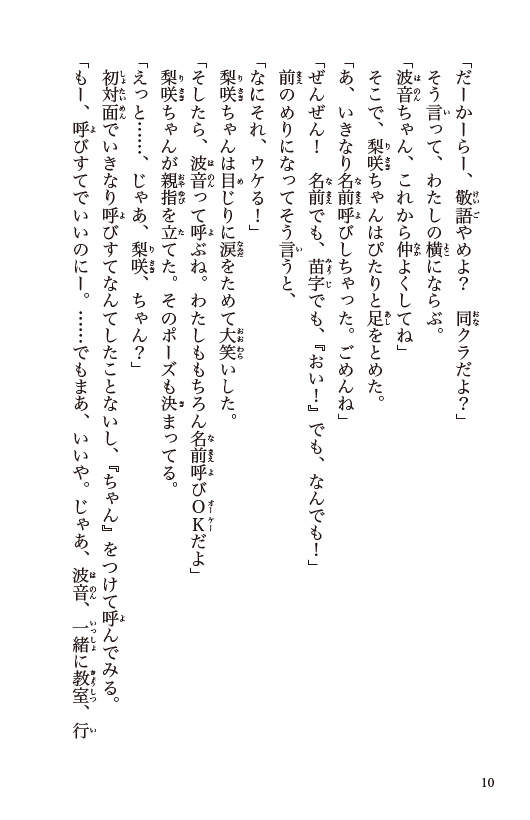 「だーかーらー、敬語やめよ？　同クラだよ？」
そう言って、わたしの横にならぶ。
「波音ちゃん、これから仲よくしてね」
そこで、梨咲ちゃんはぴたりと足をとめた。
「あ、いきなり名前呼びしちゃった。ごめんね」
「ぜんぜん！　名前でも、苗字でも、『おい！』でも、なんでも！」
前のめりになってそう言うと、
「なにそれ、ウケる！」
梨咲ちゃんは目じりに涙をためて大笑いした。
「そしたら、波音って呼ぶね。わたしももちろん名前呼びOKだよ」
梨咲ちゃんが親指を立てた。そのポーズも決まってる。
「えっと……、じゃあ、梨咲、ちゃん？」
初対面でいきなり呼びすてなんてしたことないし、『ちゃん』をつけて呼んでみる。
「もー、呼びすてでいいのにー。……でもまあ、いいや。じゃあ、波音、一緒に教室、行
10